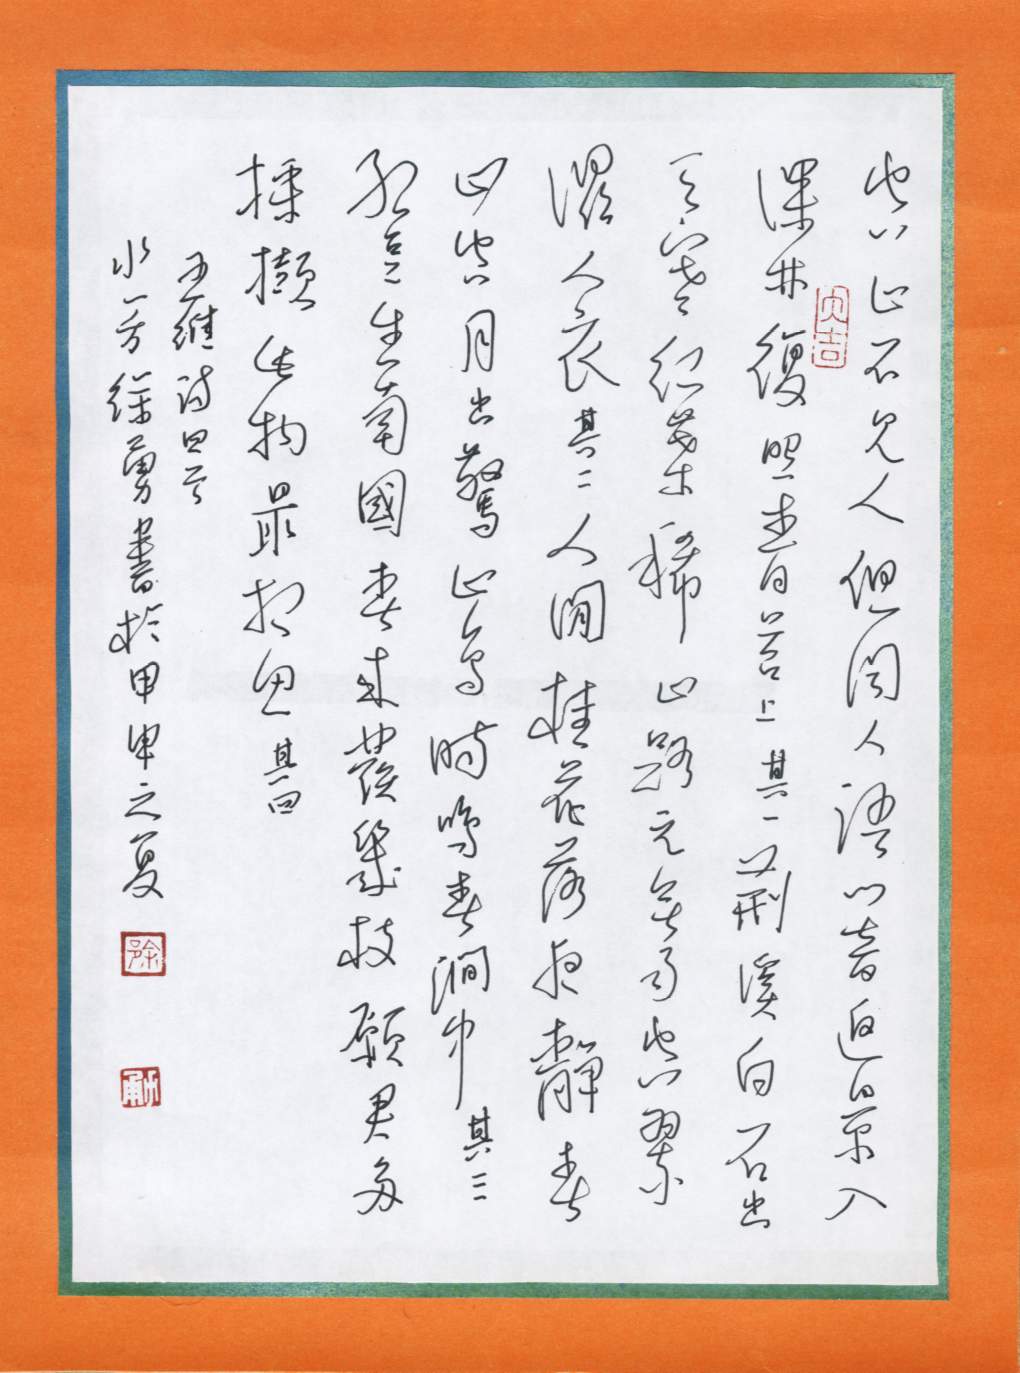 空山不見人但聞人語響返景入
深林復照青苔上其一荊溪白石出
天寒紅葉稀山路元無雨空翠
濕人衣其二人閒桂花落夜靜春
山空月出驚山鳥時鳴春澗中其三
紅豆生南國春來發幾枝願君多
採擷此物最相思其四
王維詩四首
水一方徐勇書於甲申之夏
大吉
徐
勇